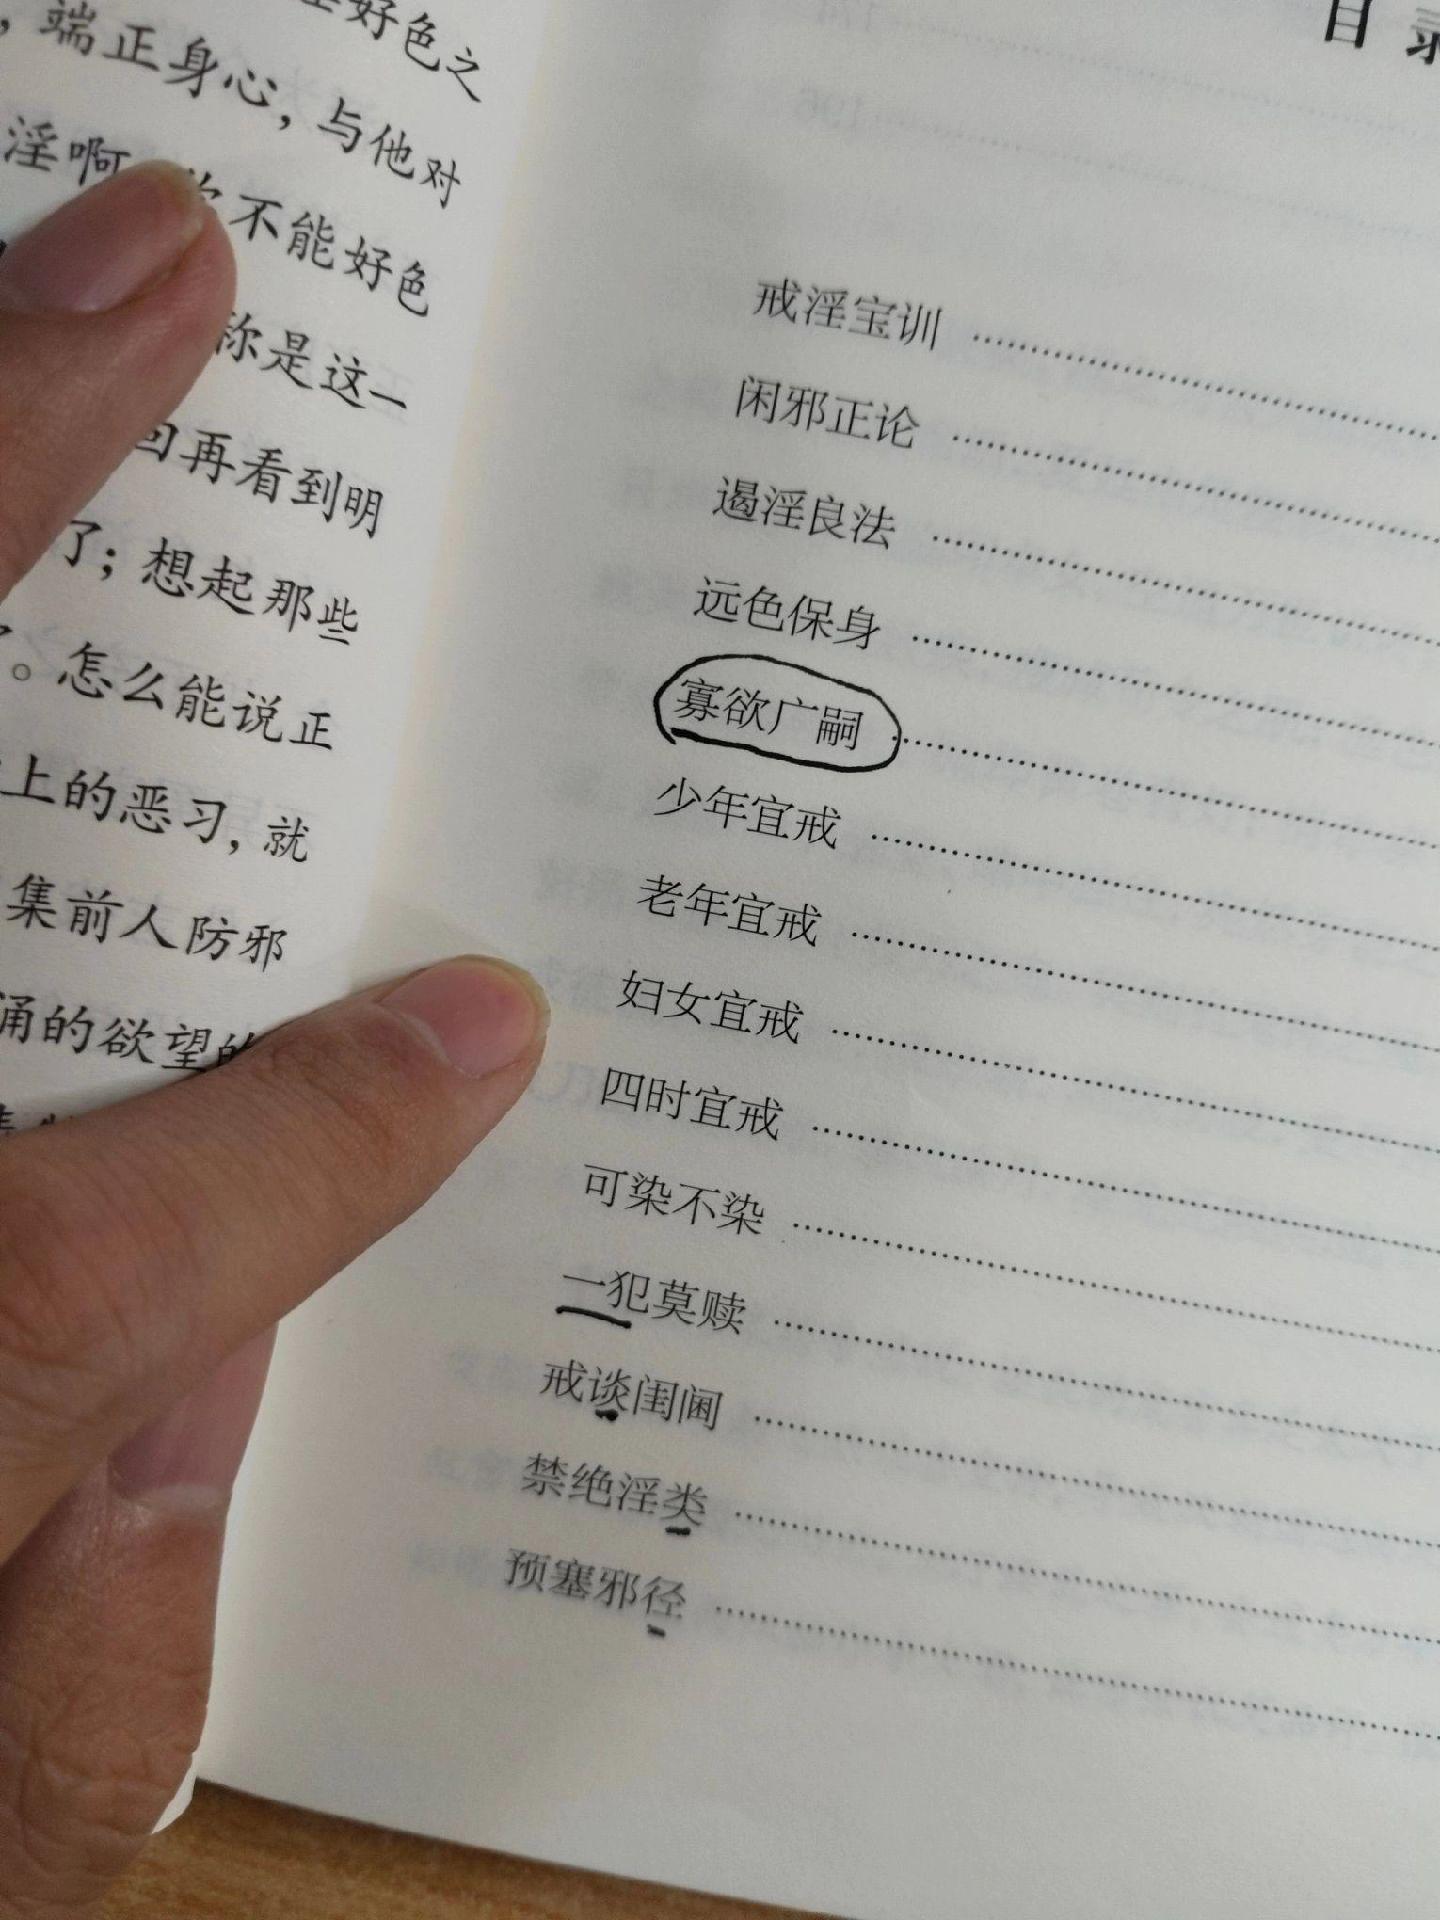 好色之
，端正身心，与他对
淫啊 不能好色
你是这一
回再看到明
了；想起那些
。怎么能说正
上的恶习，就
集前人防邪
涌的欲望的
目录
戒淫宝训
闲邪正论
遏淫良法
远色保身
寡欲广嗣
少年宜戒
老年宜戒
妇女宜戒
四时宜戒
可染不染
一犯莫赎
戒谈闺阃
禁绝淫类
预塞邪径